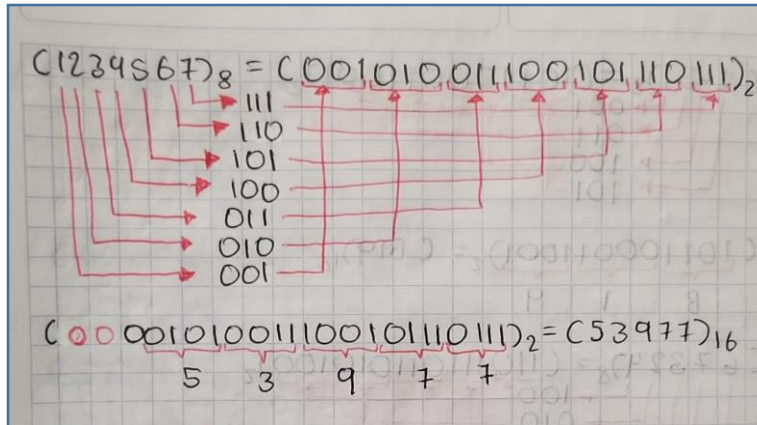 (1234567)₈ = (001010011100101110111)₂
111
110
101
100
011
010
001
(000001010011100101110111)₂ = (53977)₁₆
5 3 9 7 7